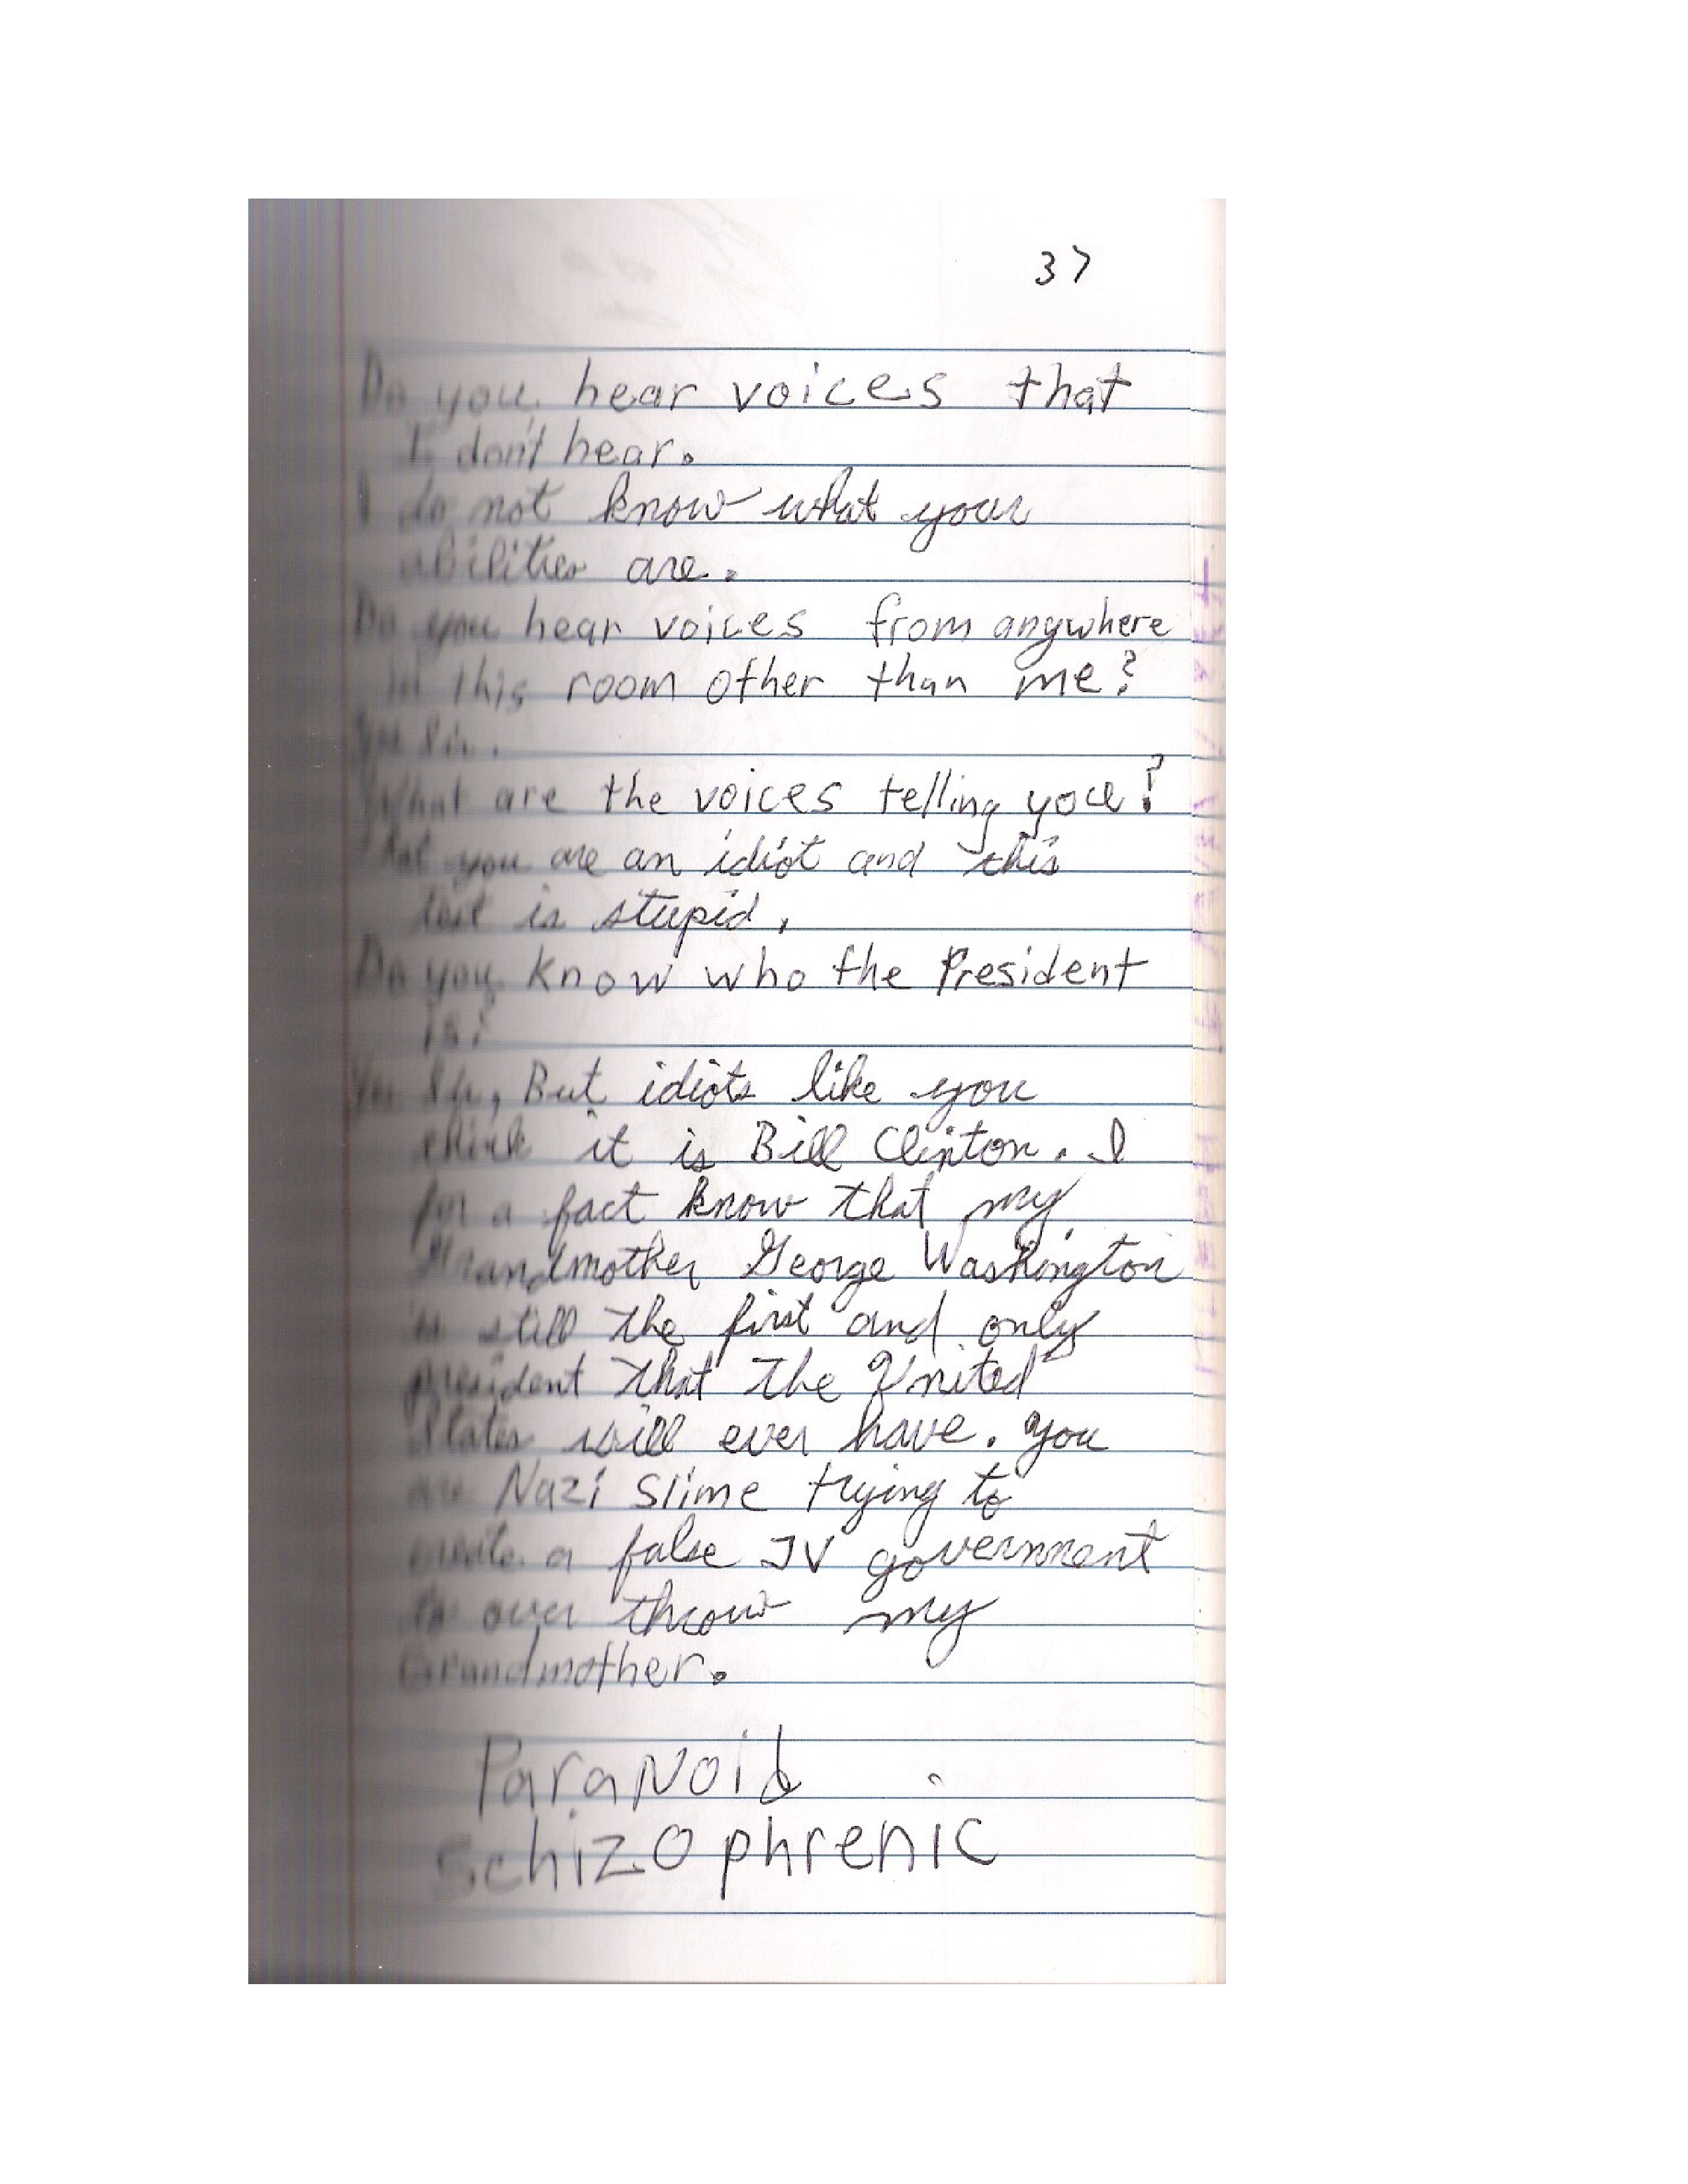 37
Do you hear voices that
I don't hear.
I do not know what your
abilities are.
Do you hear voices from anywhere
in this room other than me?
Yes Sir.
What are the voices telling you?
That you are an idiot and this
test is stupid,
Do you know who the President
is?
Yes Sir, But idiots like you
think it is Bill Clinton. I
for a fact know that my
Grandmother George Washington
is still the first and only
president that the United
States will ever have. You
are Nazi Slime trying to
create a false TV government
to over throw my
Grandmother.
ParaNoid
Schizophrenic